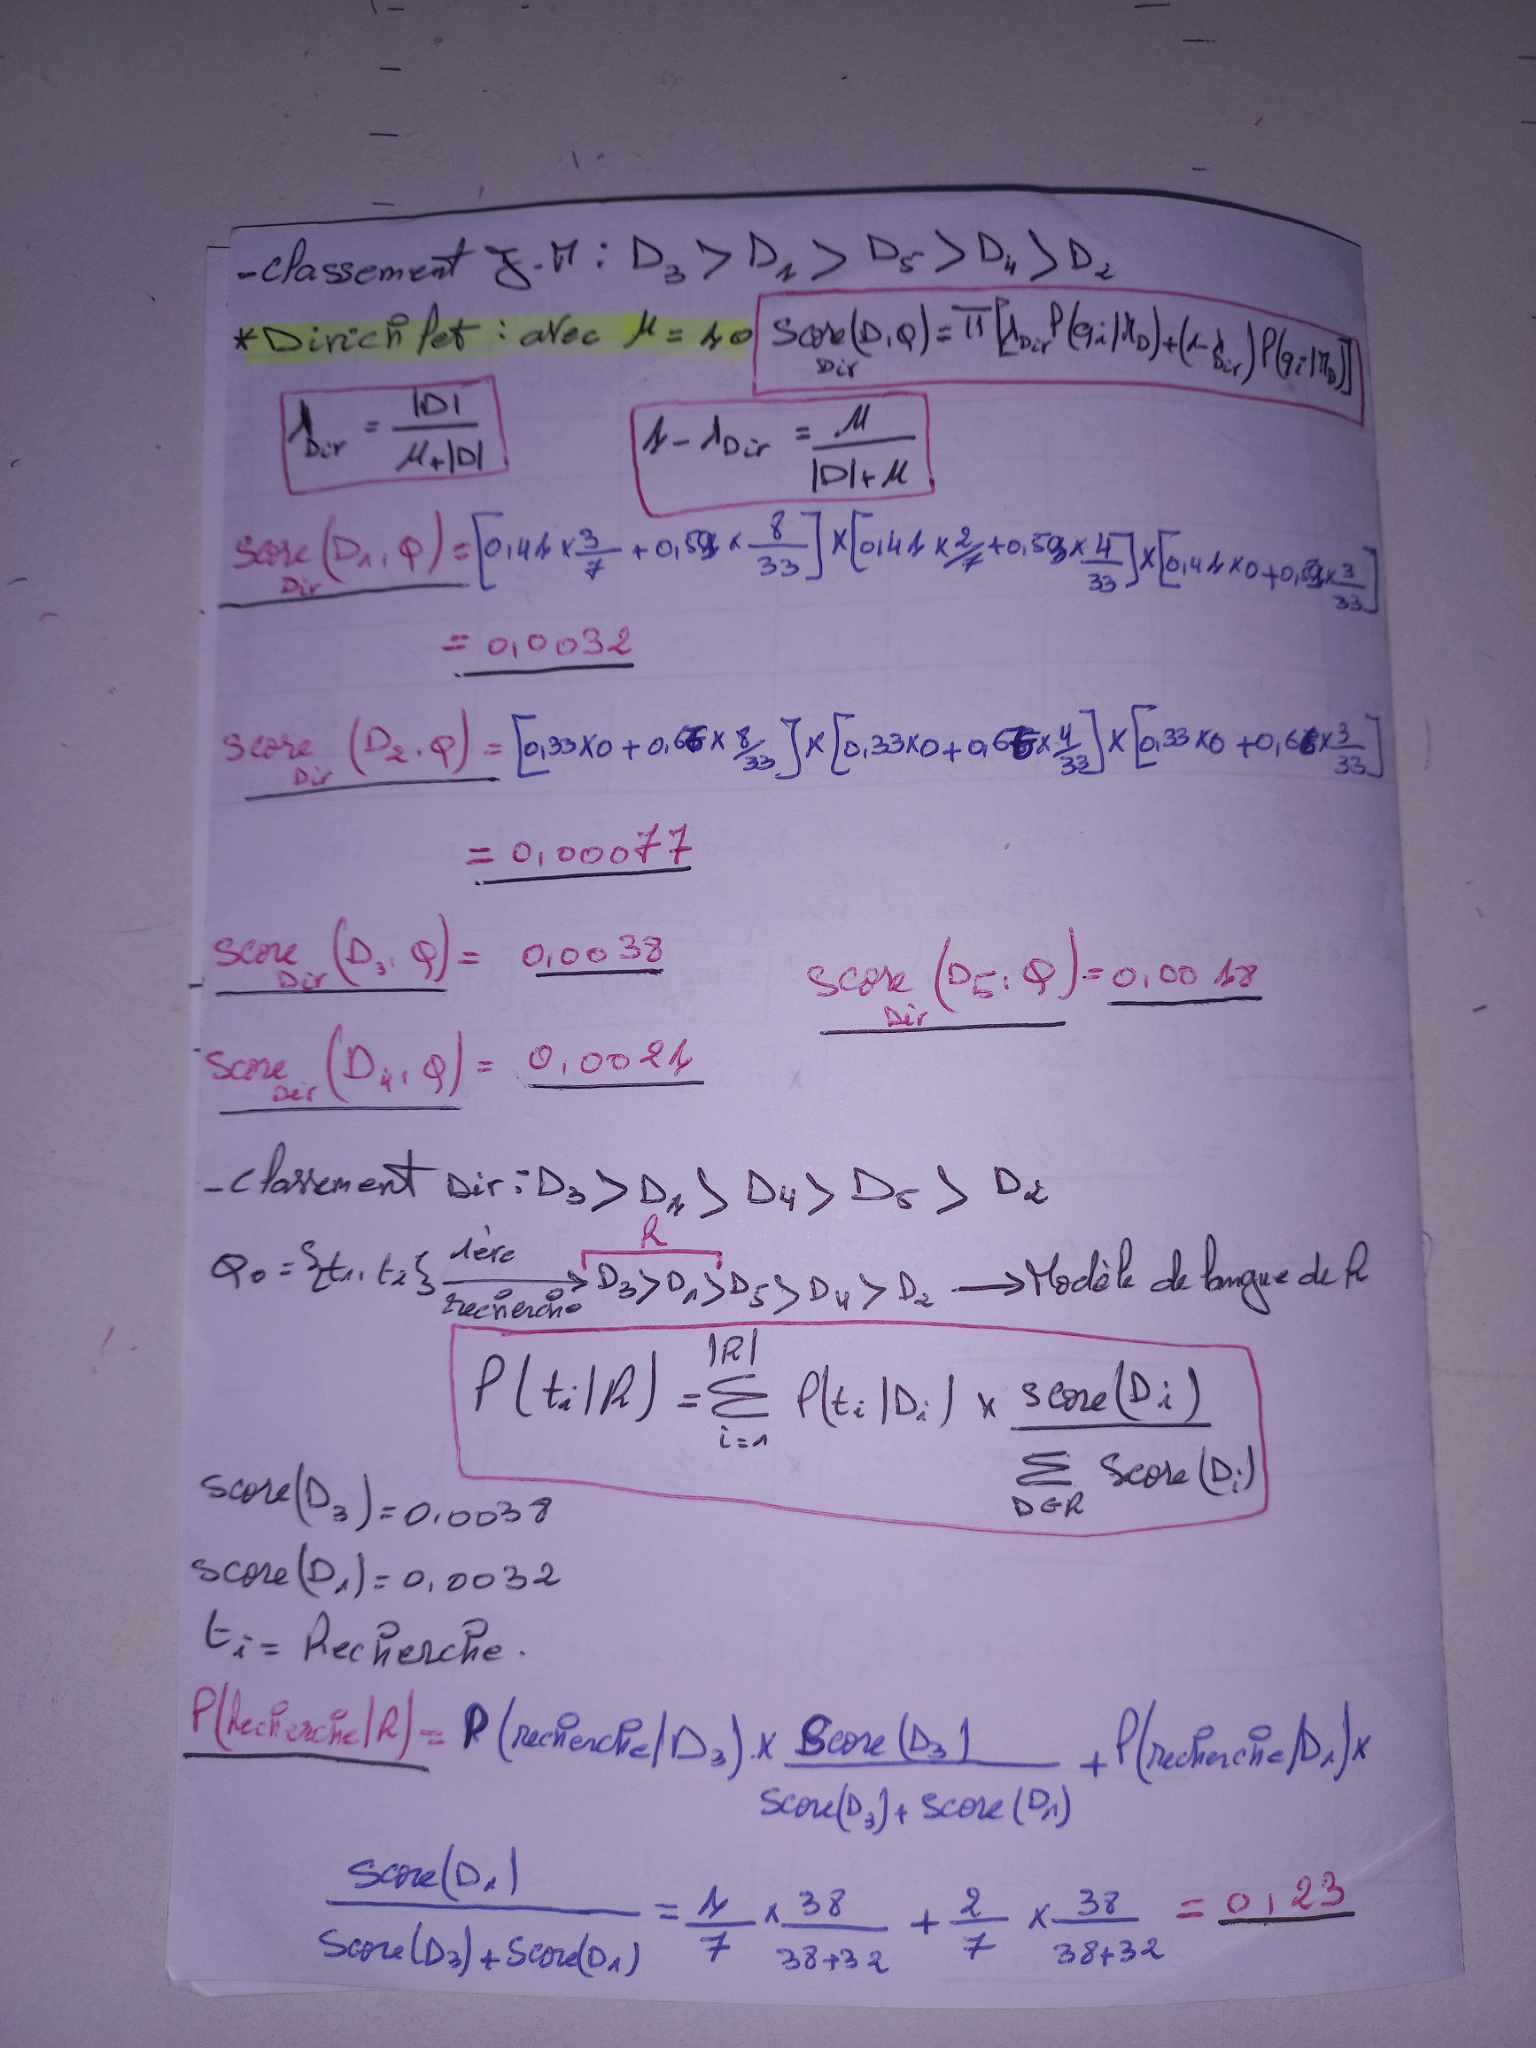 -Classement J.M : D3 > D1 > D5 > D4 > D2
* Dirichlet : avec μ = 10 Score Dir (D,Q) = Π [λDir P(qi|MD) + (1-λDir) P(qi|MD)]
λDir = |D| / μ+|D|   1-λDir = μ / |D|+μ
Score Dir (D1,Q) = [0,41 x 3/7 + 0,59 x 8/33] x [0,41 x 2/7 + 0,59 x 4/33] x [0,41 x 0 + 0,59 x 3/33]
= 0,0032
Score Dir (D2,Q) = [0,33 x 0 + 0,66 x 8/33] x [0,33 x 0 + 0,66 x 4/33] x [0,33 x 0 + 0,66 x 3/33]
= 0,00077
Score Dir (D3,Q) = 0,0038
Score Dir (D5,Q) = 0,0018
Score Dir (D4,Q) = 0,0021
-Classement Dir : D3 > D1 > D4 > D5 > D2
R
Q0 = {t1, t2} 1ère recherche → D3 > D1 > D5 > D4 > D2 → Modèle de langue de R
P(ti|R) = Σ i=1 |R| P(ti|Di) x score(Di) / Σ D∈R Score(Di)
Score(D3) = 0,0038
Score(D1) = 0,0032
ti = Recherche.
P(Recherche|R) = P(recherche|D3) x Score(D3) / Score(D3) + Score(D1) + P(recherche|D1) x
Score(D1) / Score(D3) + Score(D1) = 1/7 x 38/38+32 + 2/7 x 38/38+32 = 0,23